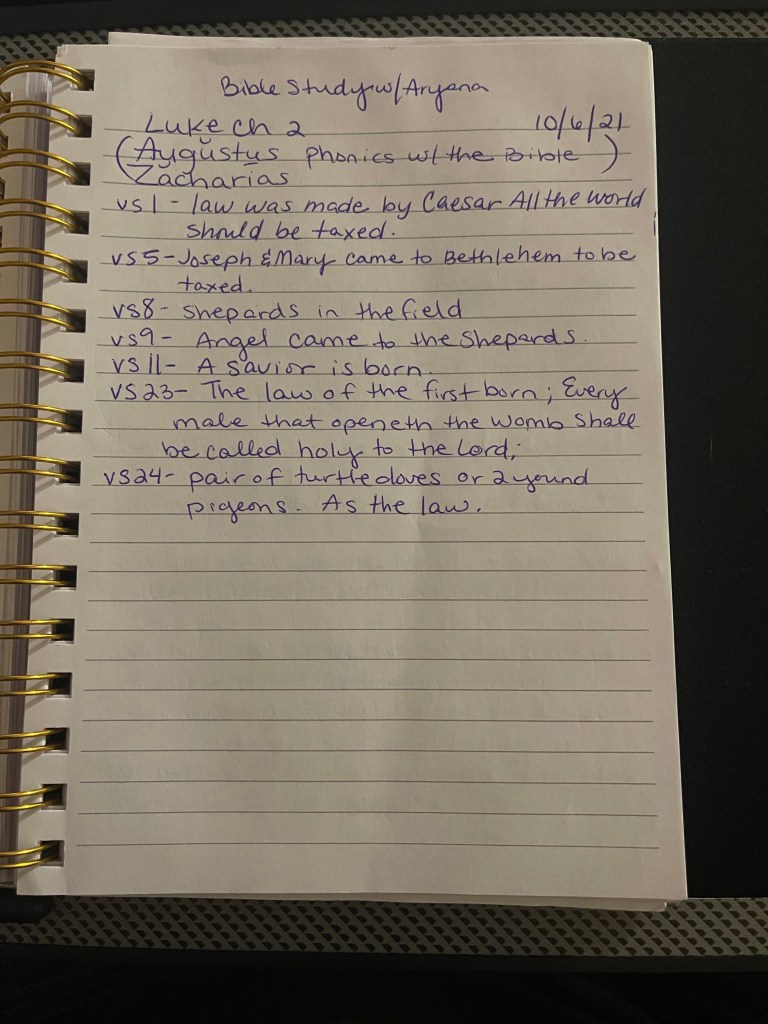 Bible Study w/ Aryana
Luke ch 2 10/6/21
(Aygŭstus phonics w/ the Bible)
Zacharias
vs 1 - law was made by Caesar All the world
should be taxed.
vs 5 - Joseph & Mary came to Bethlehem to be
taxed.
vs 8 - Shepards in the field
vs 9 - Angel came to the Shepards.
vs 11 - A Savior is born.
vs 23 - The law of the first born; Every
male that openeth the womb shall
be called holy to the Lord;
vs 24 - pair of turtledoves or 2 yound
pigeons. As the law.